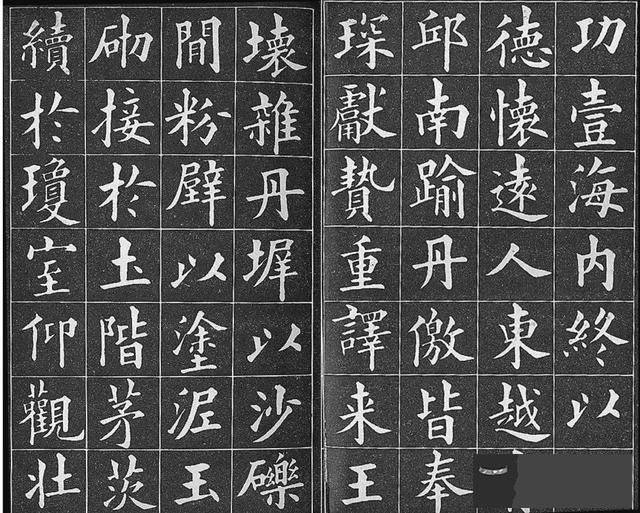 功壹海内終以
德懷遠人東越
邱南踰丹儌皆奉
琛獻贄重譯来王
壞雜丹墀以沙礫
閒粉壁以塗泥玉
砌接於土階茅茨
續於瓊室仰觀壯